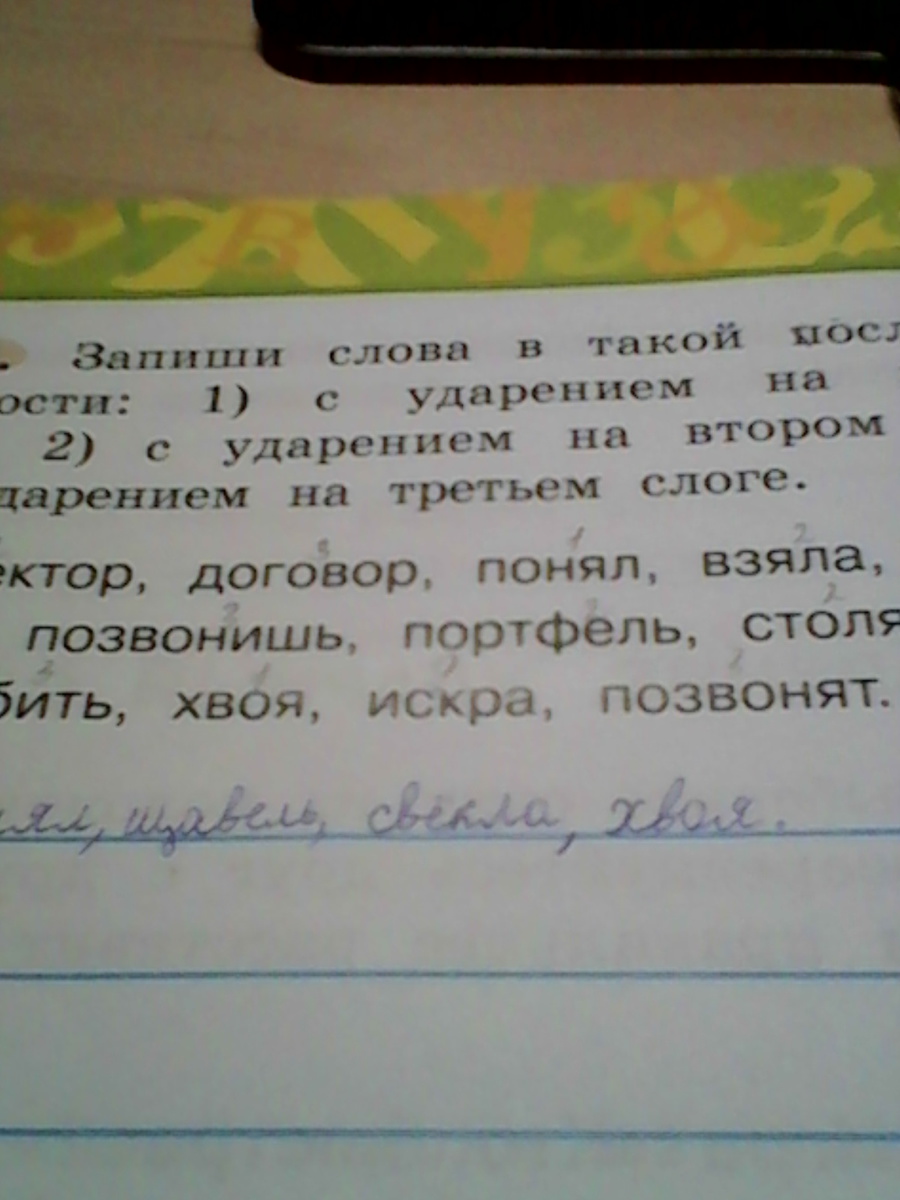 . Запиши слова в такой посл
ости: 1) с ударением на
2) с ударением на втором
дарением на третьем слоге.
ектор, договор, понял, взяла,
позвонишь, портфель, столя
бить, хвоя, искра, позвонят.
нял, щавель, свёкла, хвоя.